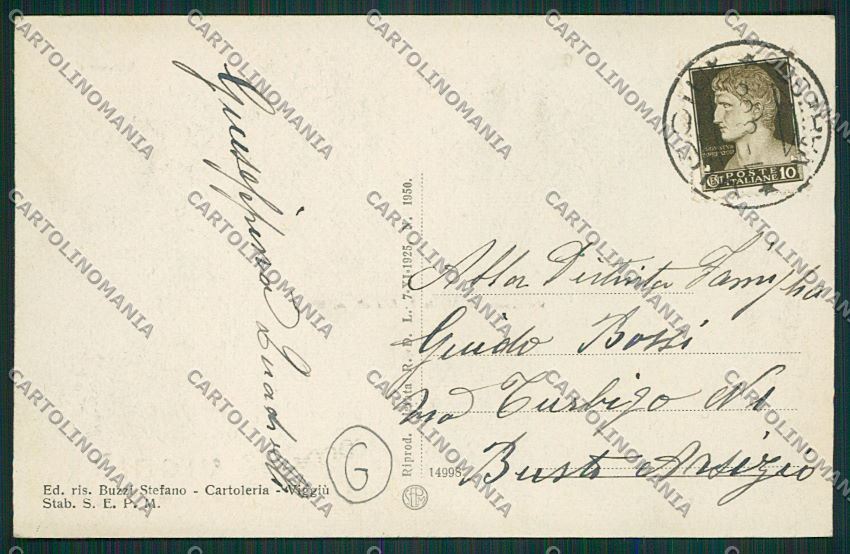 Giuseppina Quadri
Riprod. vietata R. D. L. 7-XI-1925 N. 1950.
POSTE
ITALIANE 10
Alla Distinta Famiglia
Guido Bossi
Via Turbigo N 1
Busto Arsizio
14998
G
Ed. ris. Buzzi Stefano - Cartoleria - Viggiù
Stab. S. E. P. M.
CARTOLINOMANIA